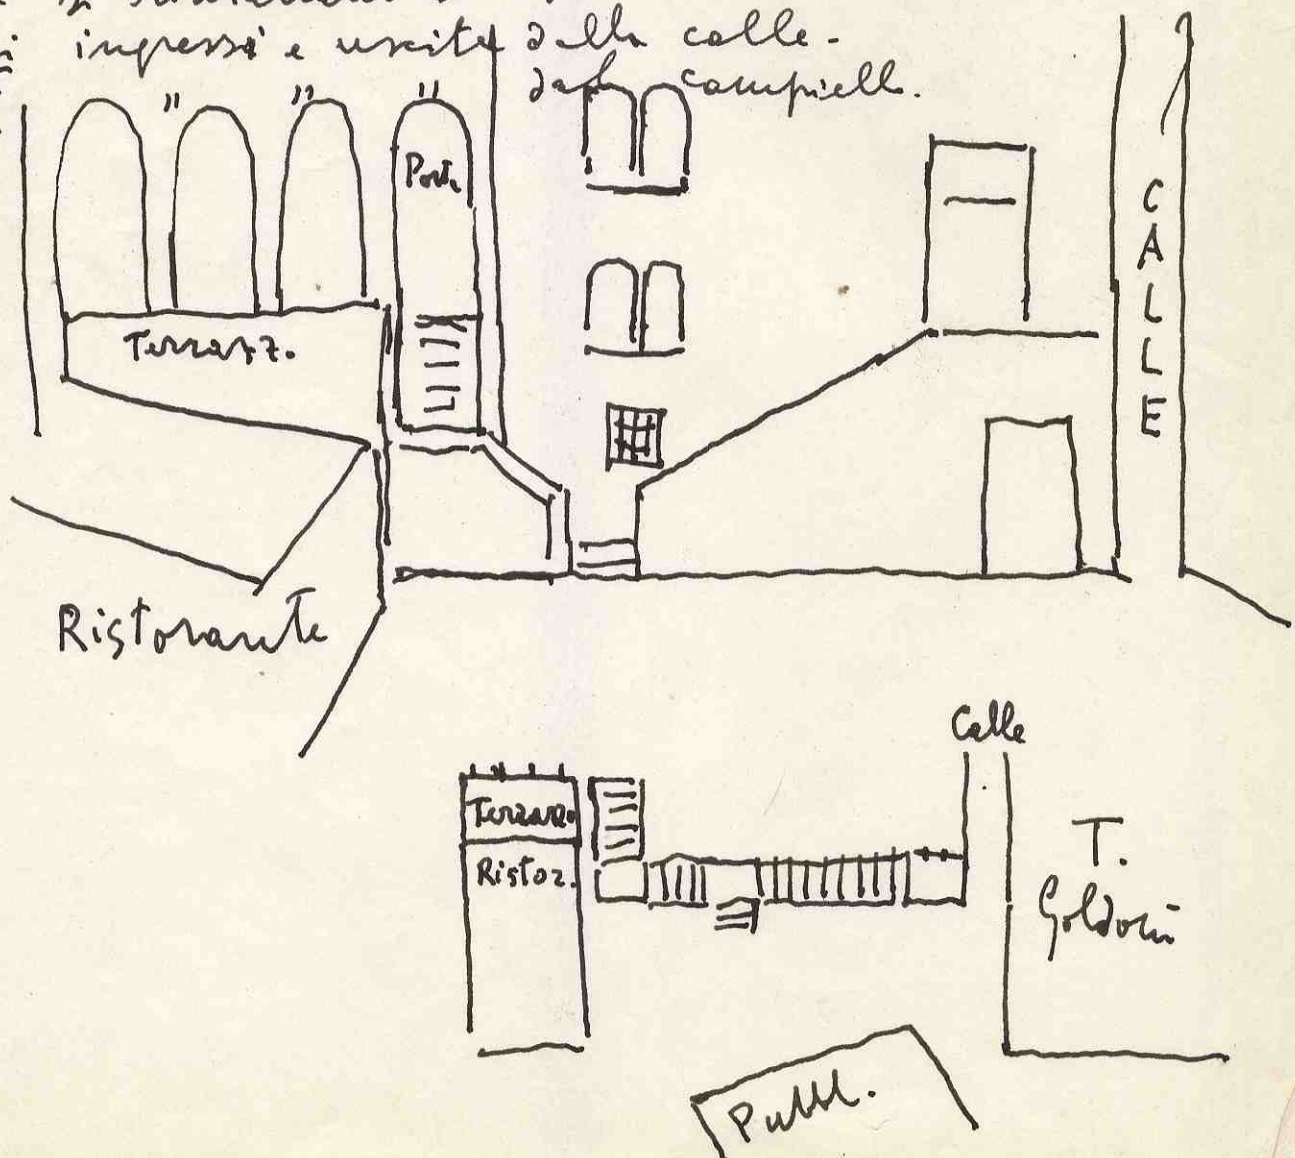 ingressi e uscite dalla calle.
dal campiello.
" " "
Porta
CALLE
Terrazz.
Ristorante
Calle
Terrazzo
Ristor.
T.
Goldoni
Pubbl.